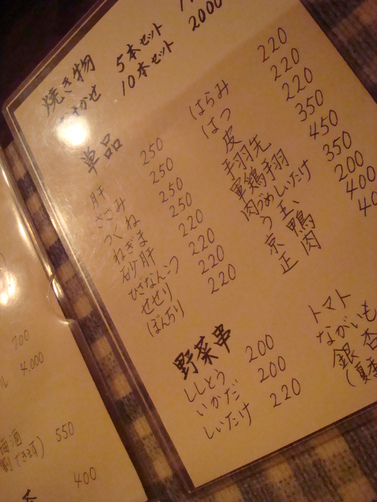 焼き物
おまかせ 5本セット
10本セット 2000
単品
肝 250
ささみ 250
つくね 250
ねぎま 220
砂肝 220
ひざなんこつ 220
せせり 220
ぼんちり
はらみ 220
はつ 220
皮 220
手羽先 350
軍鶏手羽 450
肉づめしいたけ 350
うずら玉 200
京鴨 400
正肉 40
野菜串
ししとう 200
いかだ 200
しいたけ 220
トマト
ながいも
銀杏
700
4,000
梅酒 550
400